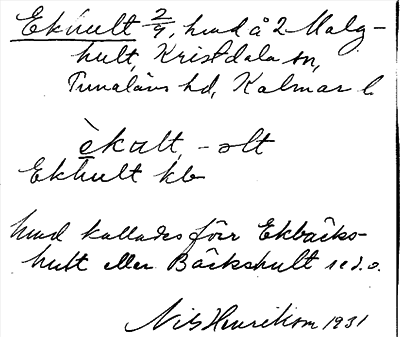 Ekhult 2/4, hmd å 2 Malg-
hult, Kristdala sn,
Tunaläns hd, Kalmar l.
èkult, -olt
Ekhult kb
hmd kallades förr Ekbäcks-
hult eller Bäckshult
Nils Henrikson 1931